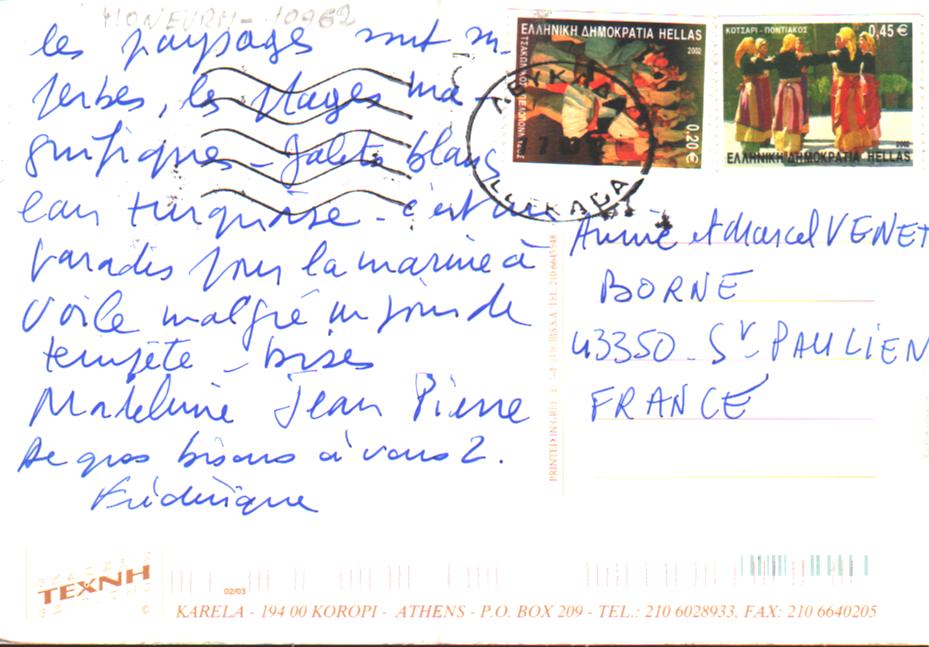 MONEURM-10962
les paysages sont su-
perbes, les plages ma-
gnifiques - galets blancs
eau turquoise - c'est un
paradis pour la marine à
voile malgré un jour de
tempête - bises
Madeleine Jean Pierre
de gros bisous à vous 2.
Frédérique
ΕΛΛΗΝΙΚΗ ΔΗΜΟΚΡΑΤΙΑ HELLAS
2002
0,20 €
ΚΟΤΣΑΡΙ - ΠΟΝΤΙΑΚΟΣ
0,45 €
2002
ΕΛΛΗΝΙΚΗ ΔΗΜΟΚΡΑΤΙΑ HELLAS
ΛΕΥΚΑΔΑ
Annie et Marcel VENET
BORNE
43350 - St PAULIEN
FRANCE
PRINTED IN
TEL. 210 6645548
ΤΕΧΝΗ
©
02/03
KARELA - 194 00 KOROPI - ATHENS - P.O. BOX 209 - TEL.: 210 6028933, FAX: 210 6640205